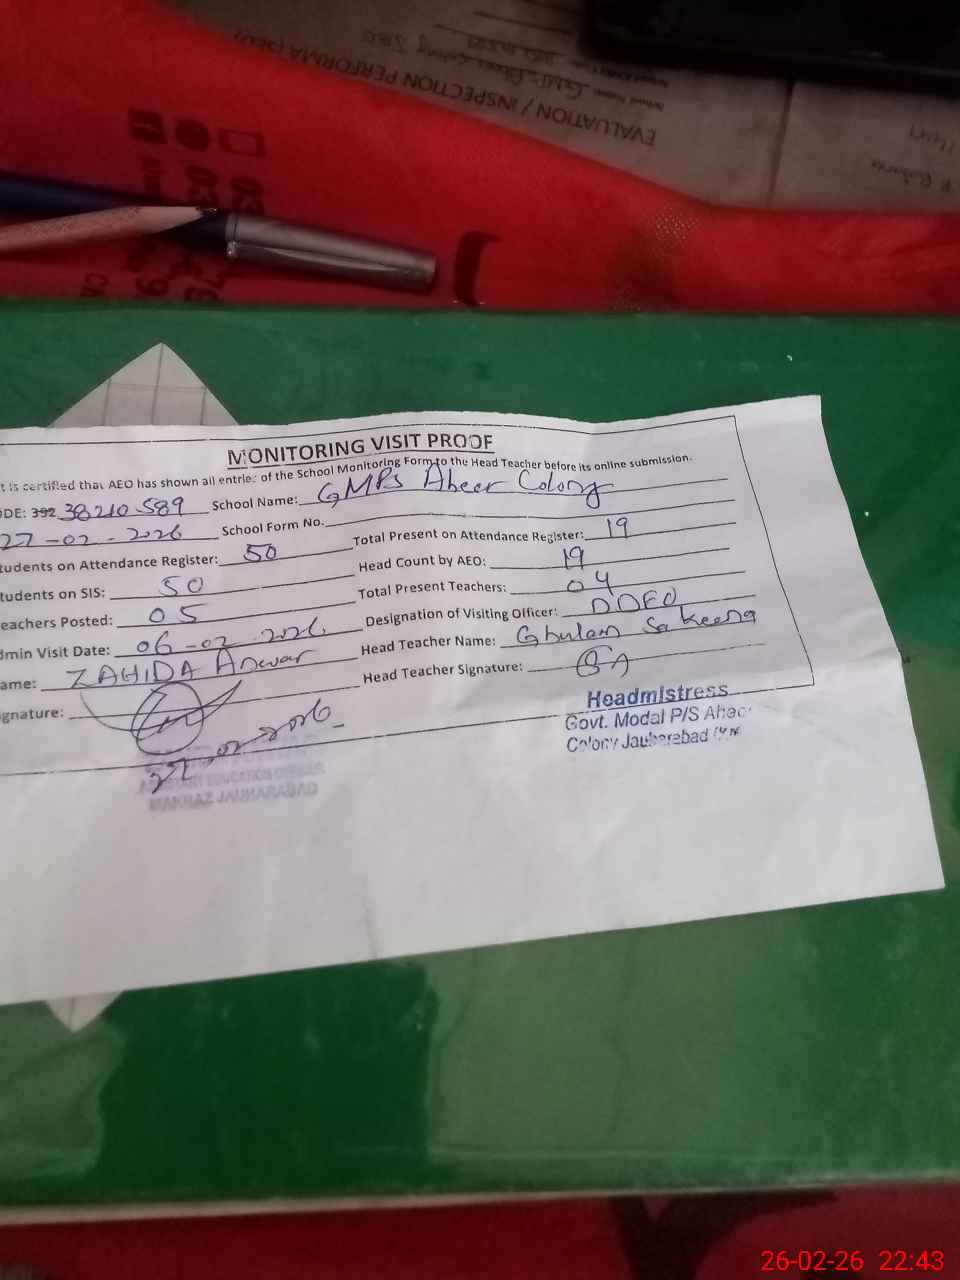 EVALUATION / INSPECTION PERFORMA (SED)
MONITORING VISIT PROOF
t is certified that AEO has shown all entries of the School Monitoring Form to the Head Teacher before its online submission.
ODE: 392 38210 589 School Name: GMPS Aheer Colony
27-02-2026 School Form No.
tudents on Attendance Register: 50 Total Present on Attendance Register: 19
tudents on SIS: 50 Head Count by AEO: 19
eachers Posted: 05 Total Present Teachers: 04
dmin Visit Date: 06-02-2026 Designation of Visiting Officer: DDEO
ame: ZAHIDA Anwar Head Teacher Name: Ghulam Sakeena
ignature: Head Teacher Signature:
27-02-2026
Headmistress
Govt. Modal P/S Ahee
Colony Jauharabad
ASSISTANT EDUCATION OFFICER
MARKAZ JAUHARABAD
26-02-26 22:43